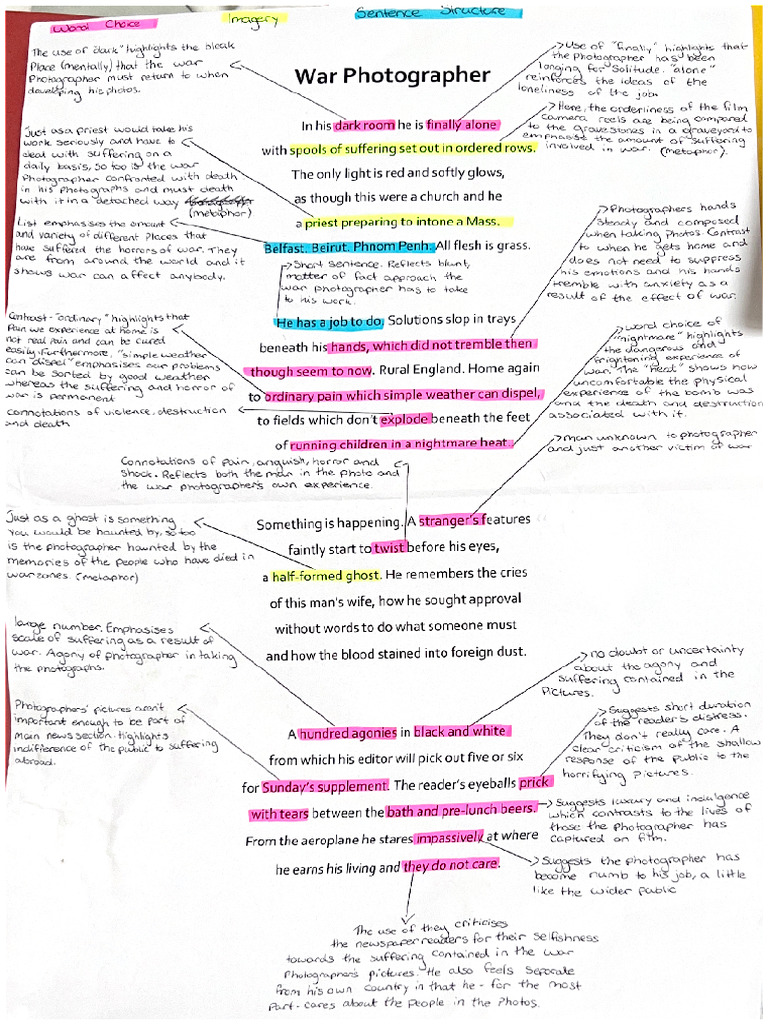 Word Choice
Imagery
Sentence Structure
War Photographer
The use of "dark" highlights the bleak
Place (mentally) that the war
Photographer must return to when
developing his photos.
Use of "finally" highlights that
the Photographer has been
longing for solitude. "alone"
reinforces the ideas of the
loneliness of the job.
Here, the orderliness of the film
camera reels are being compared
to the gravestones in a graveyard to
emphasise the amount of suffering
involved in war. (metaphor).
Just as a priest would take his
work seriously and have to
deal with suffering on a
daily basis, so too is the war
Photographer confronted with death
in his Photographs and must death
with it in a detached way
(metaphor)
List emphasises the amount
and variety of different places that
have suffered the horrors of war. They
are from around the world and it
shows war can affect anybody.
In his dark room he is finally alone
with spools of suffering set out in ordered rows.
The only light is red and softly glows,
as though this were a church and he
a priest preparing to intone a Mass.
Belfast. Beirut. Phnom Penh. All flesh is grass.
Short sentence. Reflects blunt,
matter of fact approach the
war photographer has to take
to his work.
Photographers hands
steady and composed
when taking Photos. Contrast
to when he gets home and
does not need to suppress
his emotions and his hands
tremble with anxiety as a
result of the effect of war.
Contrast - "ordinary" highlights that
Pain we experience at home is
not real pain and can be cured
easily. Furthermore, "simple weather
can "dispel" emphasises our problems
can be sorted by good weather
whereas the suffering and horror of
war is permanent
connotations of violence, destruction
and death
He has a job to do. Solutions slop in trays
beneath his hands, which did not tremble then
though seem to now. Rural England. Home again
to ordinary pain which simple weather can dispel,
to fields which don't explode beneath the feet
of running children in a nightmare heat.
word choice of
"nightmare" highlights
the dangerous and
frightening experience of
war. The "heat" shows how
uncomfortable the physical
experience of the bomb was
and the death and destruction
associated with it.
man unknown to photographer
and just another victim of war
Connotations of Pain, anguish, horror and
shock. Reflects both the man in the photo and
the war photographer's own experience.
Just as a ghost is something
you would be haunted by, so too
is the photographer haunted by the
memories of the people who have died in
warzones. (metaphor)
Something is happening. A stranger's features
faintly start to twist before his eyes,
a half-formed ghost. He remembers the cries
of this man's wife, how he sought approval
without words to do what someone must
and how the blood stained into foreign dust.
large number. Emphasises
scale of suffering as a result of
war. Agony of photographer in taking
the photographs.
no doubt or uncertainty
about the agony and
suffering contained in the
Pictures.
Photographers' pictures aren't
important enough to be part of
main news section. Highlights
indifference of the public to suffering
abroad.
A hundred agonies in black and white
from which his editor will pick out five or six
for Sunday's supplement. The reader's eyeballs prick
with tears between the bath and pre-lunch beers.
From the aeroplane he stares impassively at where
he earns his living and they do not care.
Suggests short duration
of the reader's distress.
They don't really care. A
clear criticism of the shallow
response of the public to the
horrifying pictures.
Suggests luxury and indulgence
which contrasts to the lives of
those the photographer has
captured on film.
Suggests the photographer has
become numb to his job, a little
like the wider public
The use of they criticises
the newspaper readers for their selfishness
towards the suffering contained in the war
Photographer's pictures. He also feels separate
from his own country in that he - for the most
Part - cares about the people in the photos.